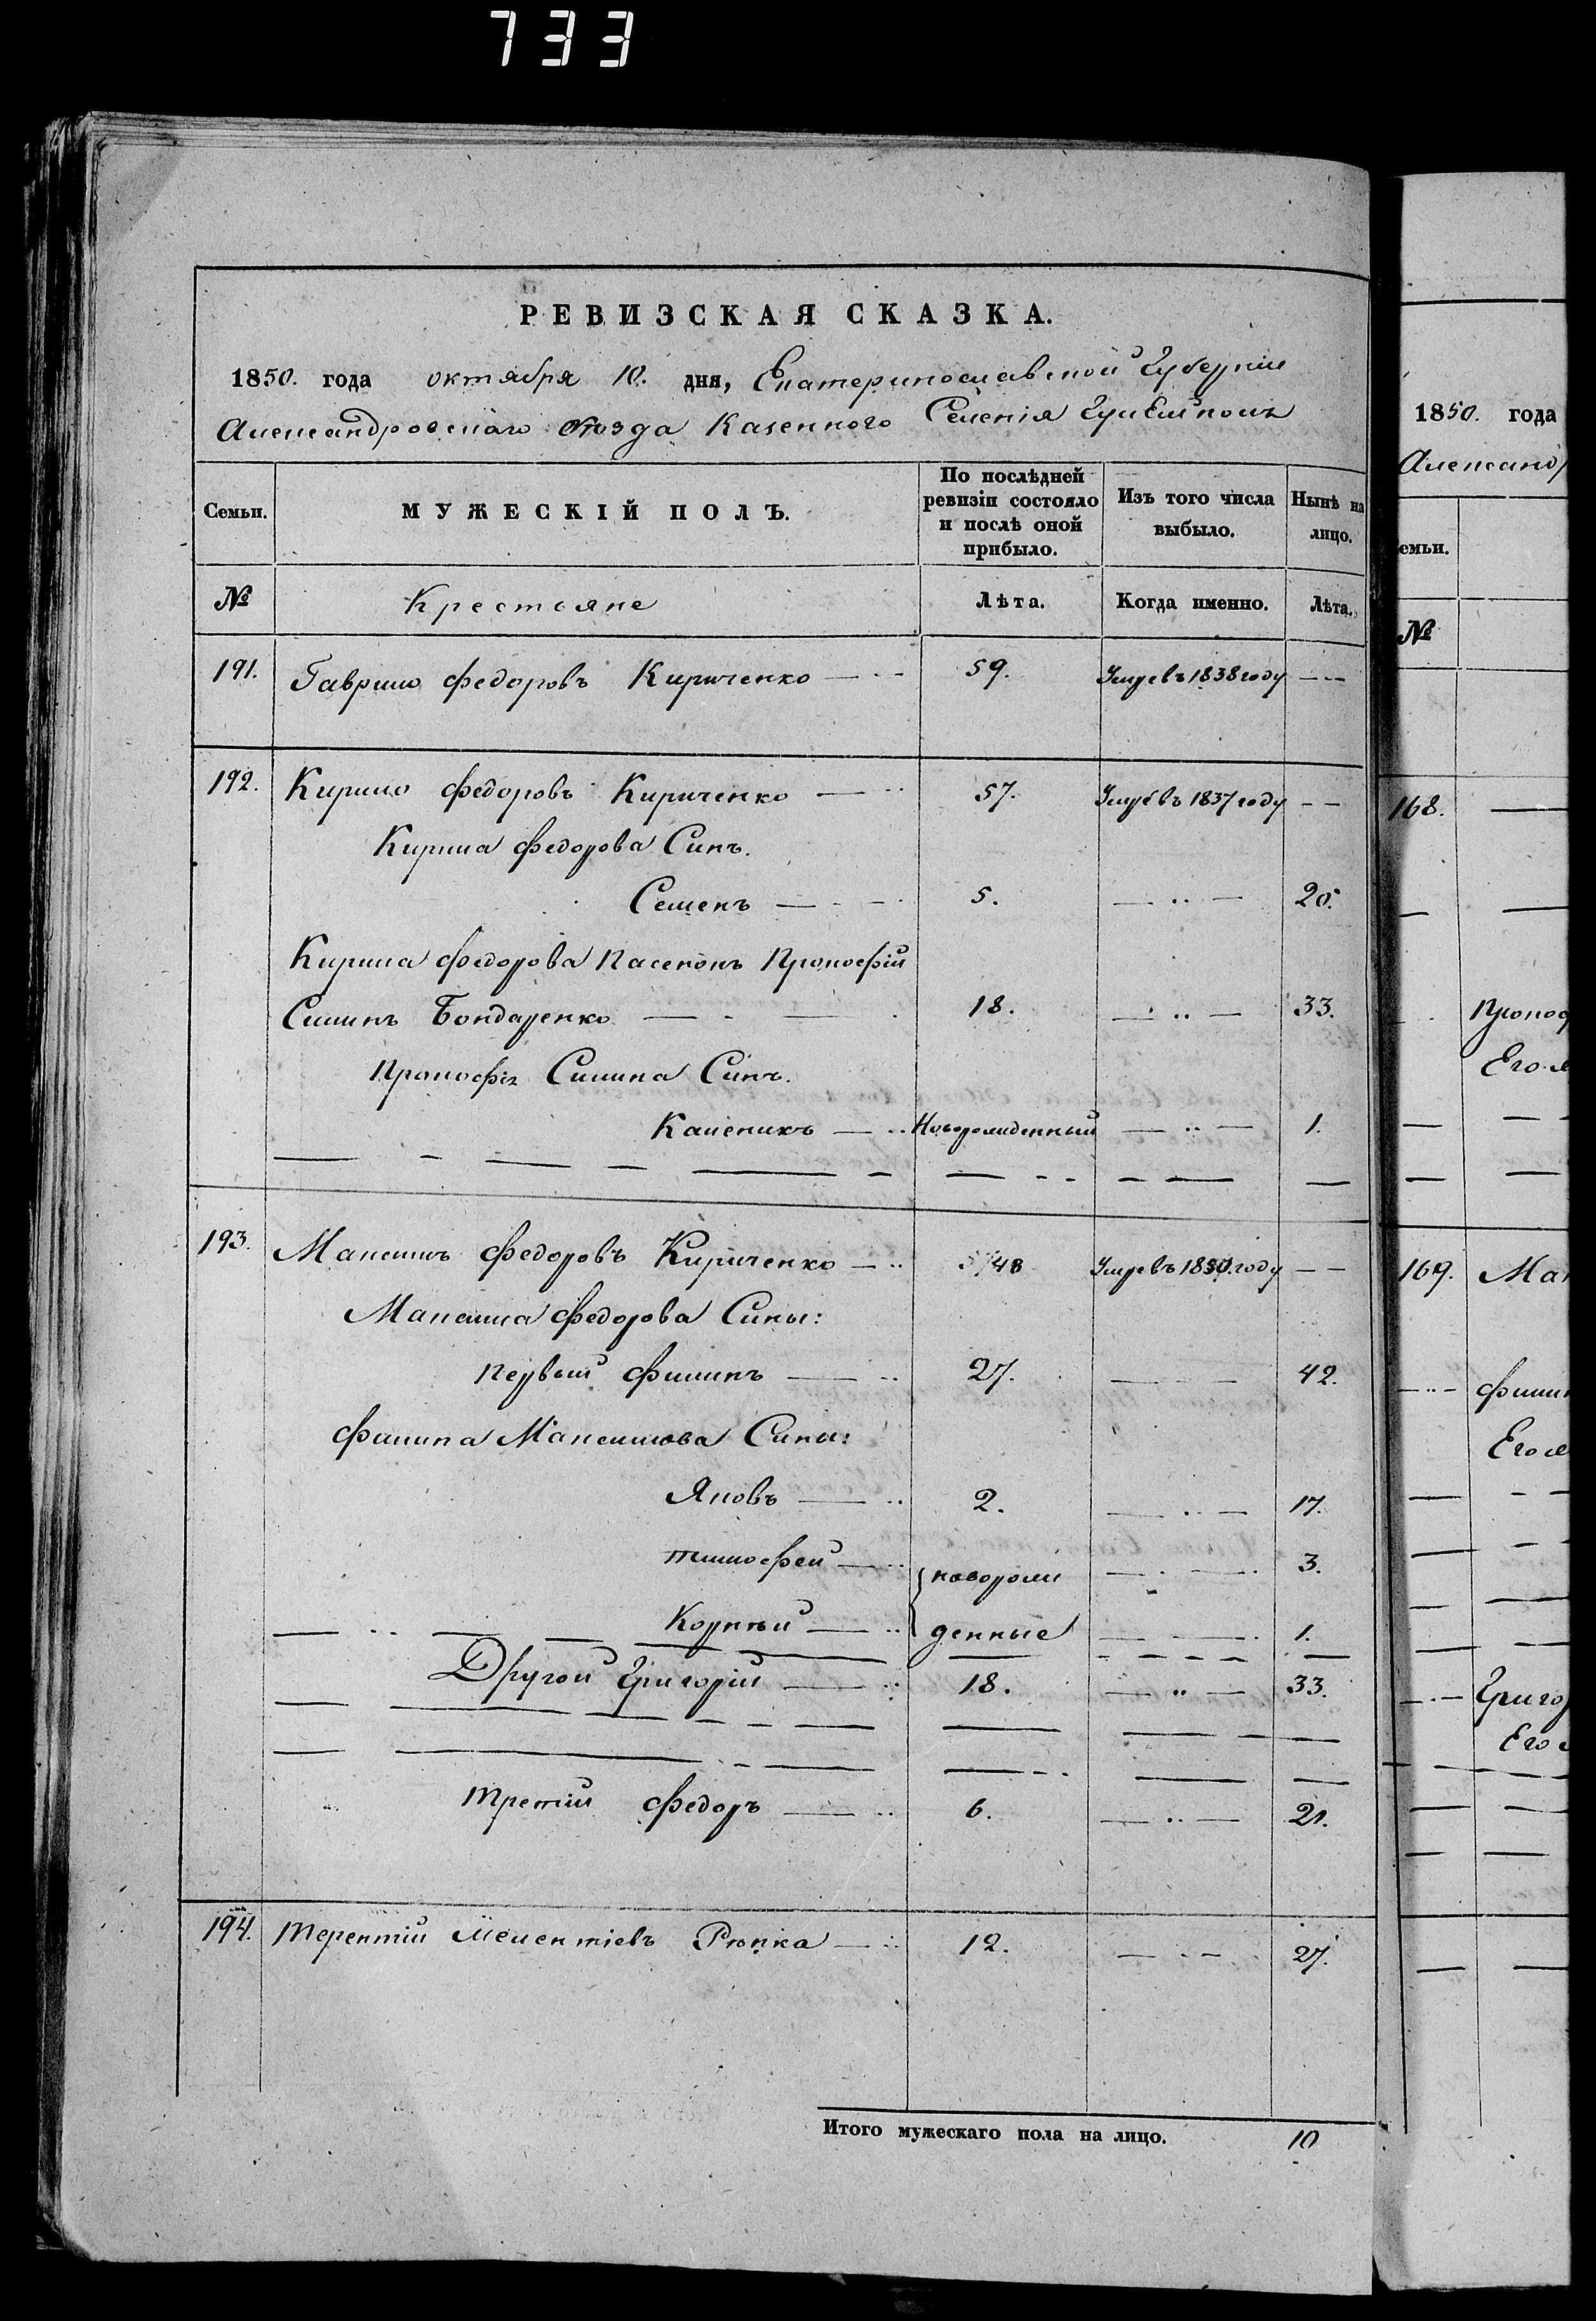 733
РЕВИЗСКАЯ СКАЗКА.
1850. года октября 10. дня, Екатеринославской Губерніи
Александровскаго Уѣзда Казенного Селенія
Семьи. МУЖЕСКІЙ ПОЛЪ. По послѣдней ревизіи состояло и послѣ оной прибыло. Изъ того числа выбыло. Нынѣ на лицо.
№ Крестьяне Лѣта. Когда именно. Лѣта.
191. Гаврило Федоровъ Кириченко 59. Умре въ 1838 году
192. Кирило Федоровъ Кириченко 57. Умре въ 1837 году
Кирила Федорова Синъ.
Семенъ 5. 20.
Кирила Федорова Пасенокъ Прокофій
Силинъ Бондаренко 18. 33.
Прокофія Силина Синъ.
Каленикъ Новорожденный 1.
193. Максимъ Федоровъ Кириченко 48 Умре въ году
Максима Федорова Сины:
Первый Филипъ 27. 42.
Филипа Максимова Сины:
Яковъ 2. 17.
Тимофей новорож 3.
Корнѣй денные 1.
Другой Григорій 18. 33.
Третій Федоръ 6. 21.
194. Терентій Рѣпка 12. 27.
Итого мужескаго пола на лицо. 10
1850. года
Александ
емьи.
№
168.
Прокоф
Его
169. Мак
Филип
Его
Григо
Его